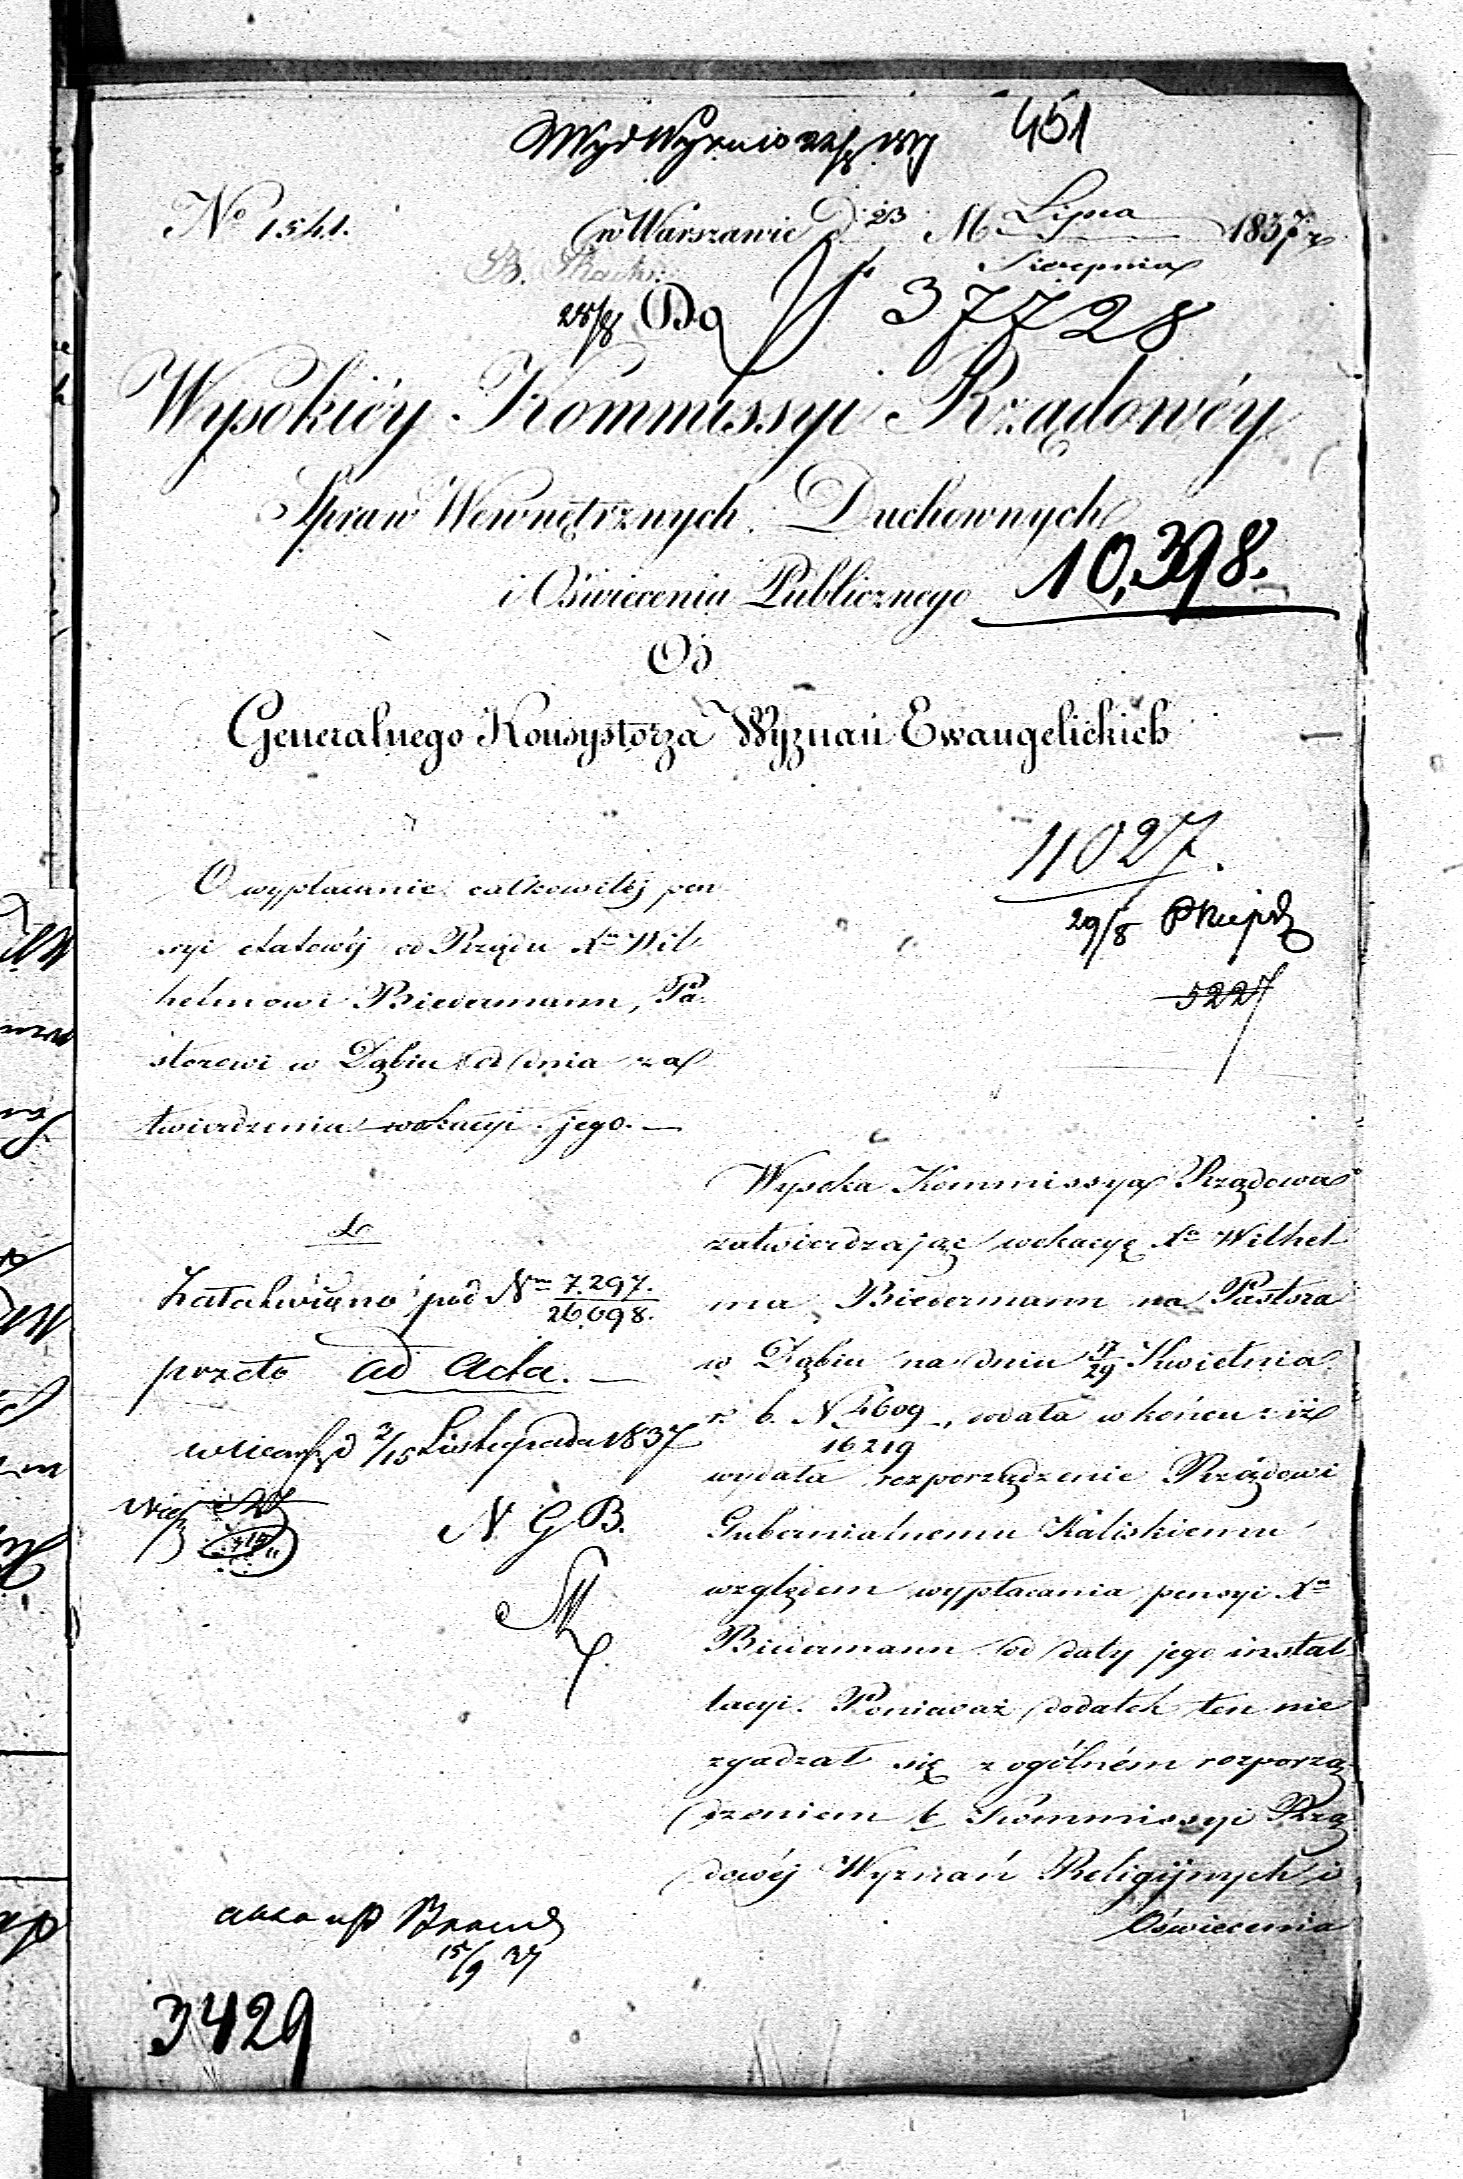 451
No 1541.
w Warszawie d. 23 M Lipca 1837 r
Sierpnia
25/8 Do 37728
Wysokiéy Kommissyi Rządowéy
Spraw Wewnętrznych Duchownych
i Oświecenia Publicznego 10,398.
Od
Generalnego Konsystorza Wyznań Ewangelickich
11027.
29/8
5227
O wypłacanie całkowitéj pen
syi etatowéj od Rządu Xu Wil
helmowi Biedermann, Pa
storowi w Dąbiu od dnia za
twierdzenia wokacyi jego. —
Załatwiono pod Nm 7.297.
26,698.
przeto ad Acta. —
d 3/15 Listopada 1837
N G B.
15/9 37
3429
Wysoka Kommissya Rządowa
zatwierdzając wokacyę Xa Wilhel
ma Biedermann na Pastora
w Dąbiu na dniu 17/29 Kwietnia
r. b. N 4609, dodała w końcu: iż
16219
wydała rozporządzenie Rządowi
Gubernialnemu Kaliskiemu
względem wypłacania pensyi Xu
Biedermann od daty jego instal
lacyi. Ponieważ dodatek ten nie
zgadzał się z ogólném rozporzą
dzeniem b. Kommissyi Rzą
dowéj Wyznań Religijnych i
Oświecenia